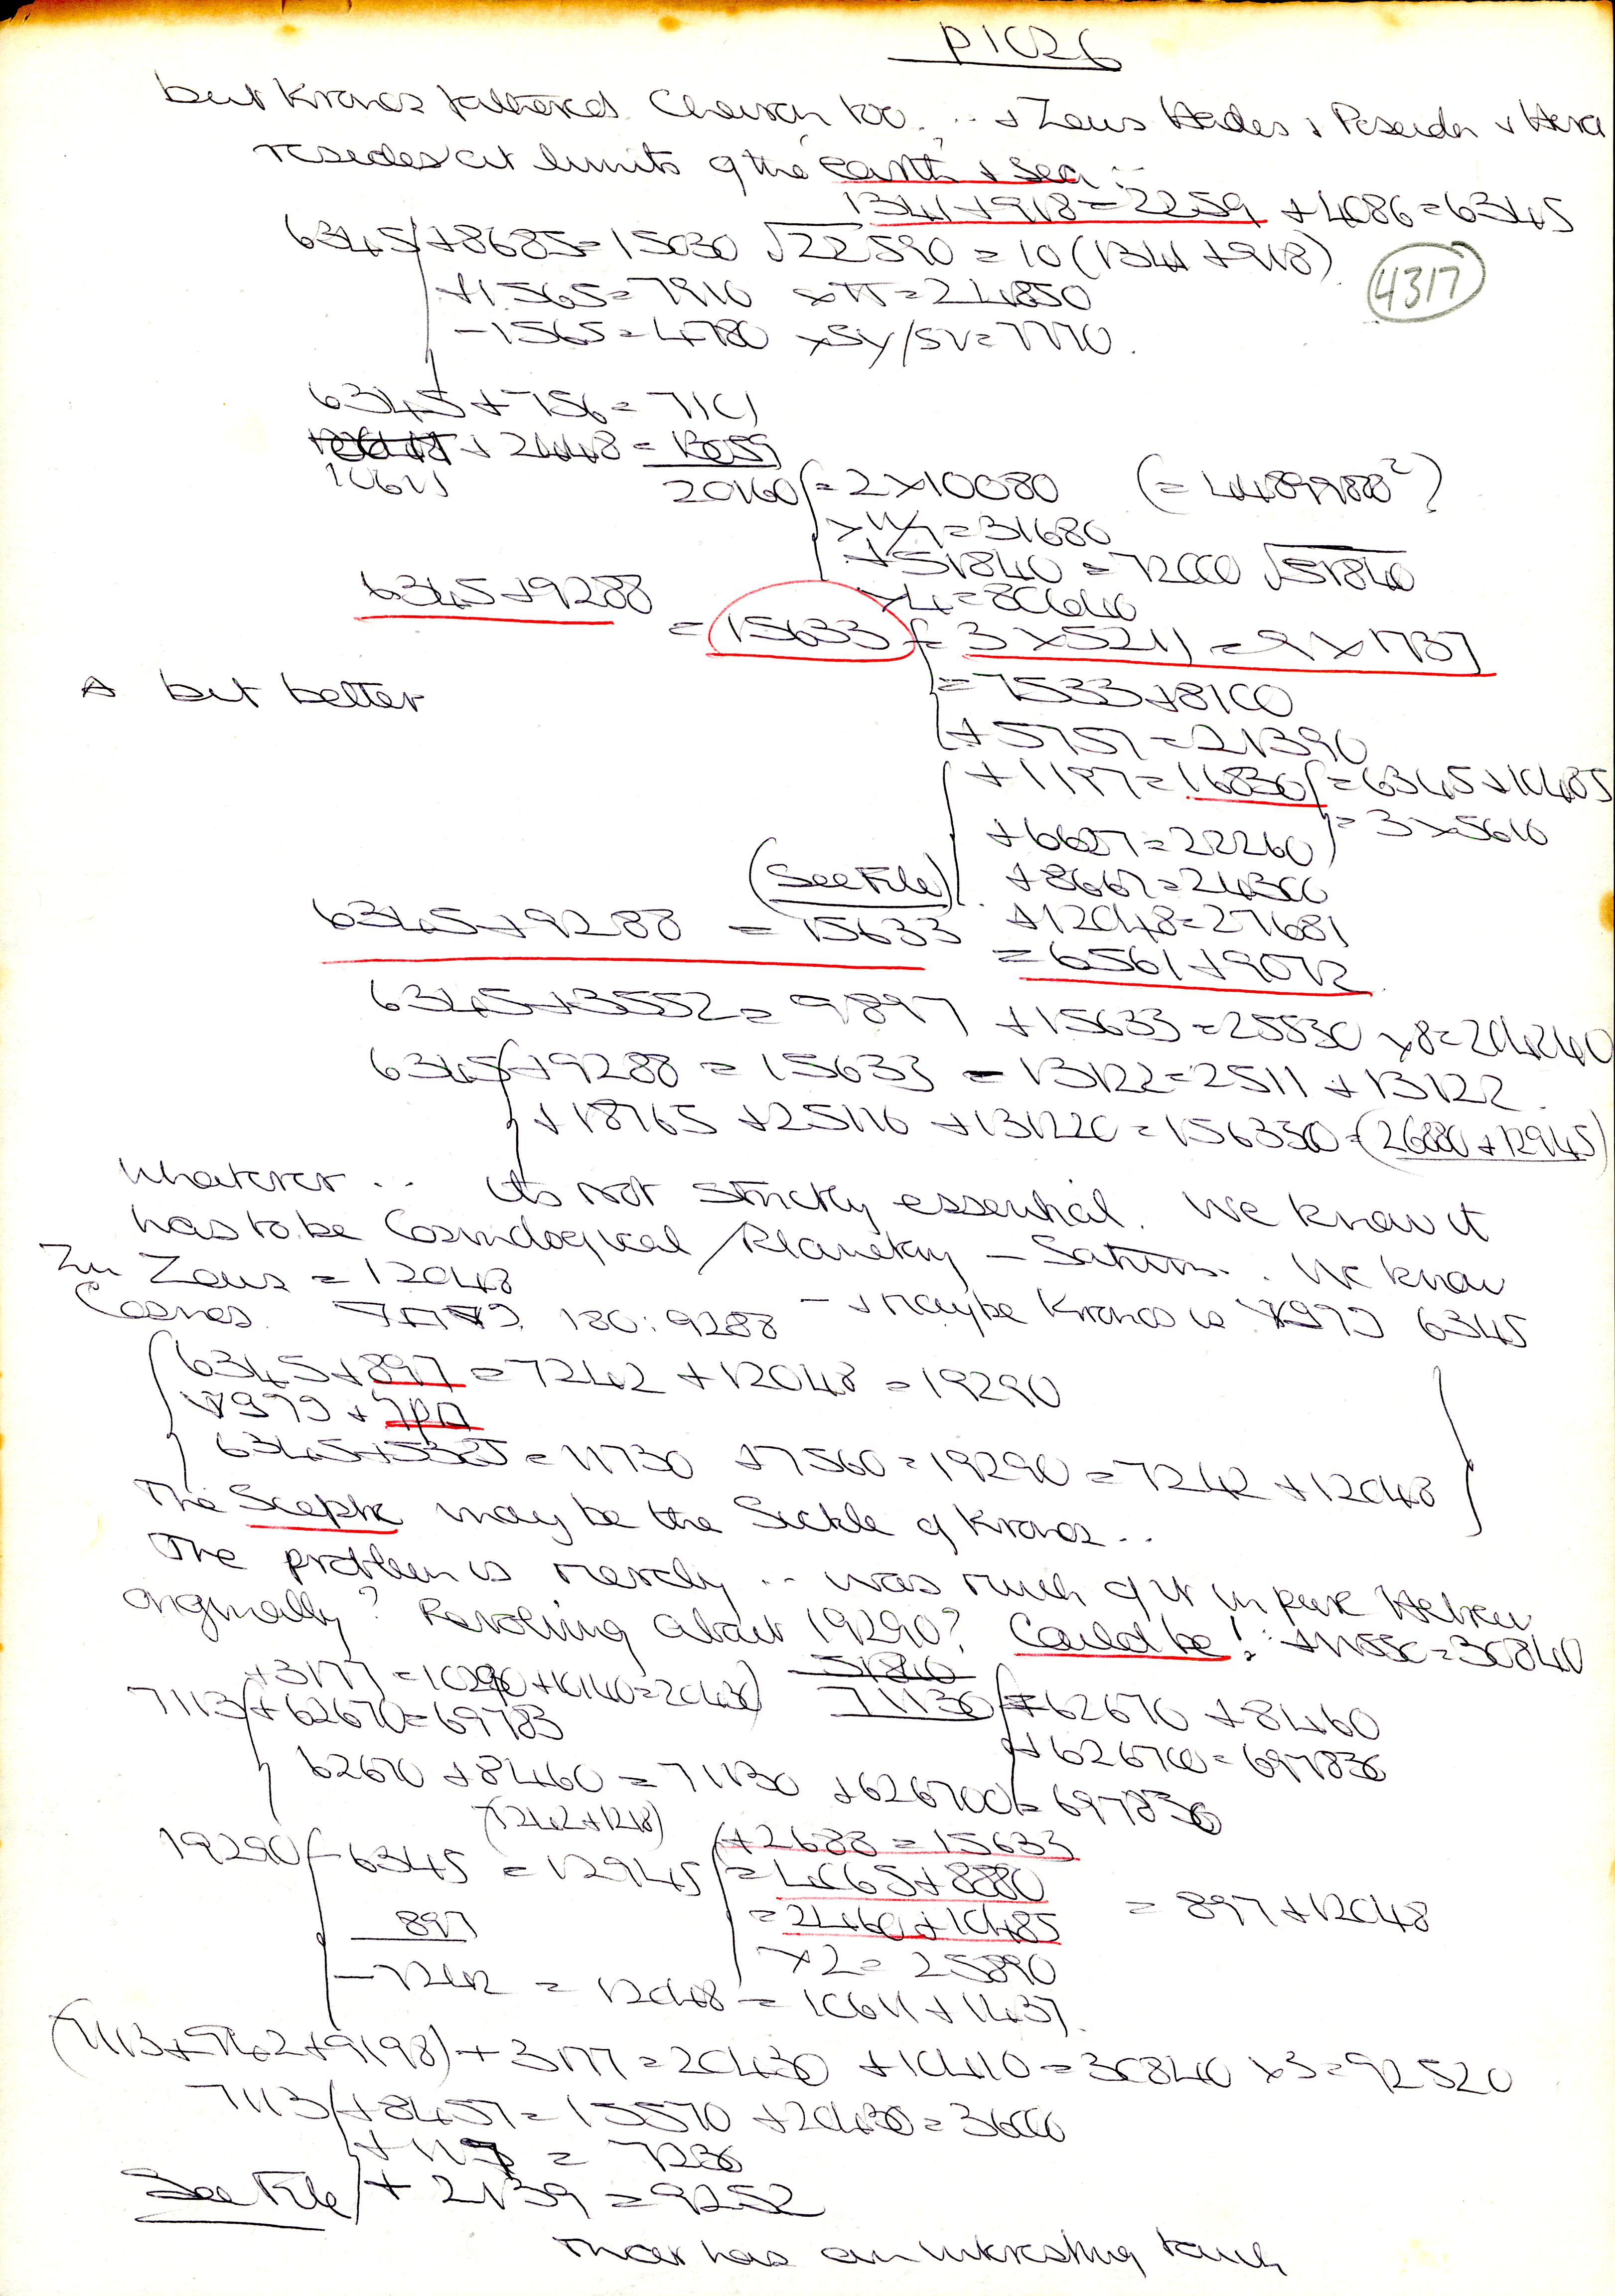 P1026
but Kronos fathered Cheiron too ... + Zeus Hades + Poseidon + Hera
resides at limits of the earth + sea :-
1341+918=2259 +4086=6345
6345 +8685=15030 √22590 = 10(1341+918)
4317
+1565=7910 xπ=24850
-1565=4780 xSY/SV=7770.
6345+756=7101
+2448=13059
10611
20160 = 2x10080 (=4489988²)
x11/7=31680
+51840=72000 √51840
x4=80640
6345+9288
=15633 = 3x5211=9x1737
A bit better
=7533+8100
+5757=21390
+1197=16830 =6345+10485
=3x5610
+6627=22260
(See File) +8667=24300
6345+9288 = 15633 +12048=27681
=6561+9072
6345+3552=9897 +15633=25530 x8=204240
6345 +9288=15633 -13122=2511+13122
+18765 +25116 +131220=156330-(2688+12945)
Whatever .. its not strictly essential. We know it
has to be Cosmological/Planetary - Saturn. We know
Zeus = 12048
180:9288 - + maybe Kronos is 6345
6345+897=7242+12048=19290
6345+5385=11730 +7560=19290=7242+12048
The Sceptre may be the Sickle of Kronos..
The problem is merely .. was much of it in pure Hebrew
originally? Revolving about 19290? Could be! +11550=30840
+3177=10290+10140=20430
51840
7113 +62670=69783 71130 =62670+8460
+626700=697830
62670+8460=71130 +626700=697830
19290 -6345=12945 +2688=15633
=4065+8880
=2460+10485 =897+12048
897
x2=25890
-7242=12048=10611+1437
(7113+942+9198)+3177=20430 +10410=30840 x3=92520
7113 +8457=15570 +20430=36000
+117 = 7230
See File + 2139=9252
has an interesting touch